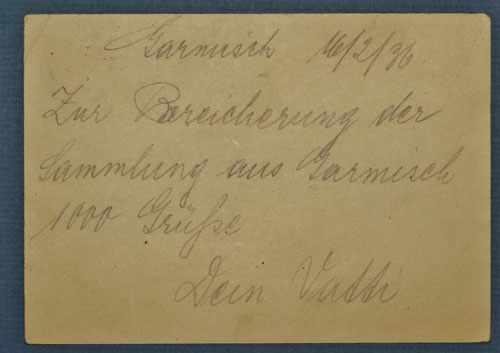 Garmisch 16/2/36.
Zur Bereicherung der
Sammlung aus Garmisch
1000 Grüße
Dein Vatti